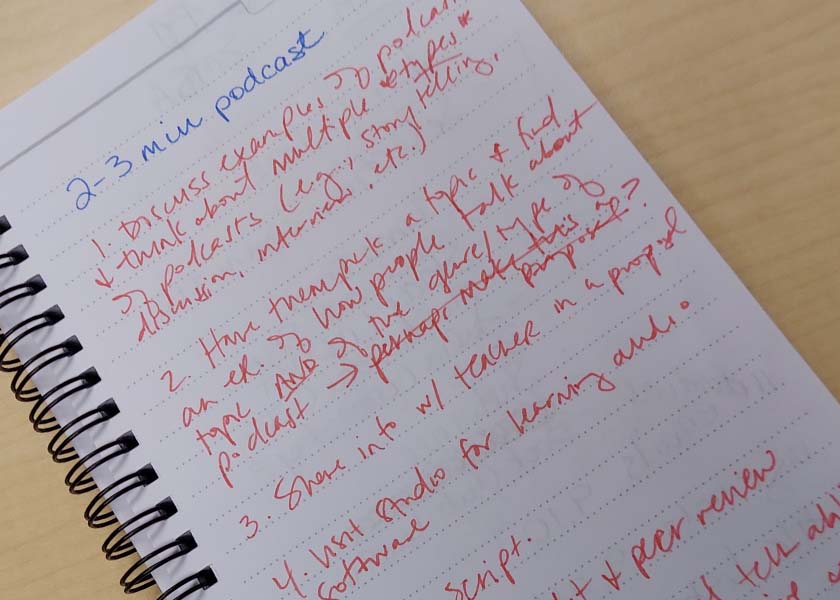 2-3 min podcast
1. Discuss examples of podcasts
& think about multiple *types*
of podcasts (e.g., story telling,
discussion, interview, etc.)
2. Have them pick a topic & find
an ex. of how people talk about
topic AND of the genre/type of
podcast → perhaps make this a
proposal?
3. Share info w/ teacher in a proposal
4. Visit Studio for learning audio
software
script.
& peer review
tell